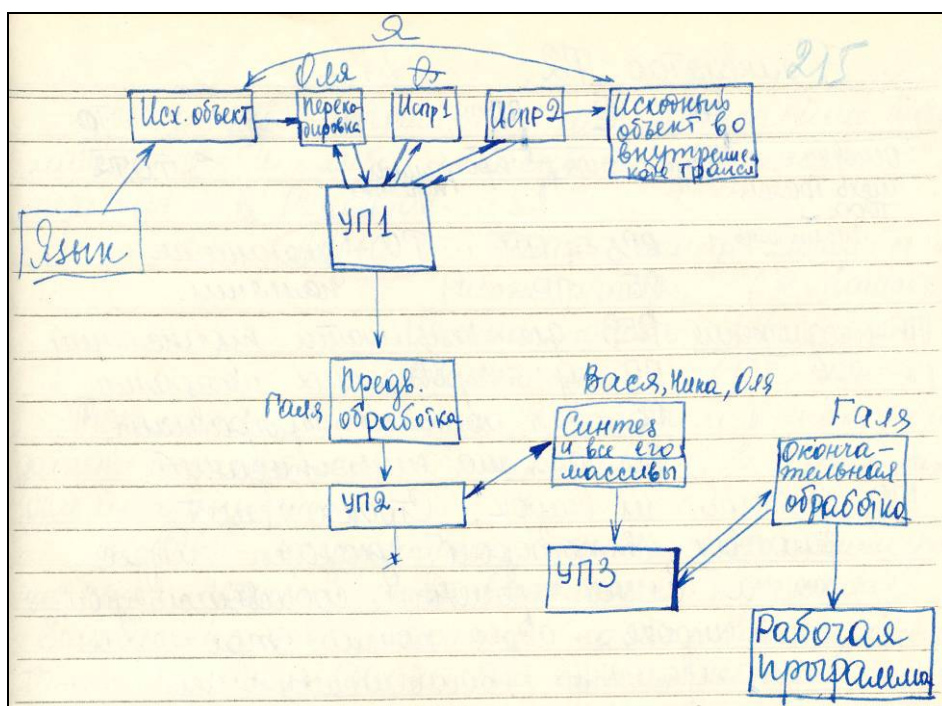 Я
215
Оля
Исх. объект
Перекодировка
Испр 1
Испр 2
Исходный
объект во
внутрен
коде трансл
Язык
УП1
Галя
Предв.
обработка
УП2.
Вася, Ника, Оля
Синтез
и все его
массивы
УП3
Галя
Оконча-
тельная
обработка
Рабочая
программа